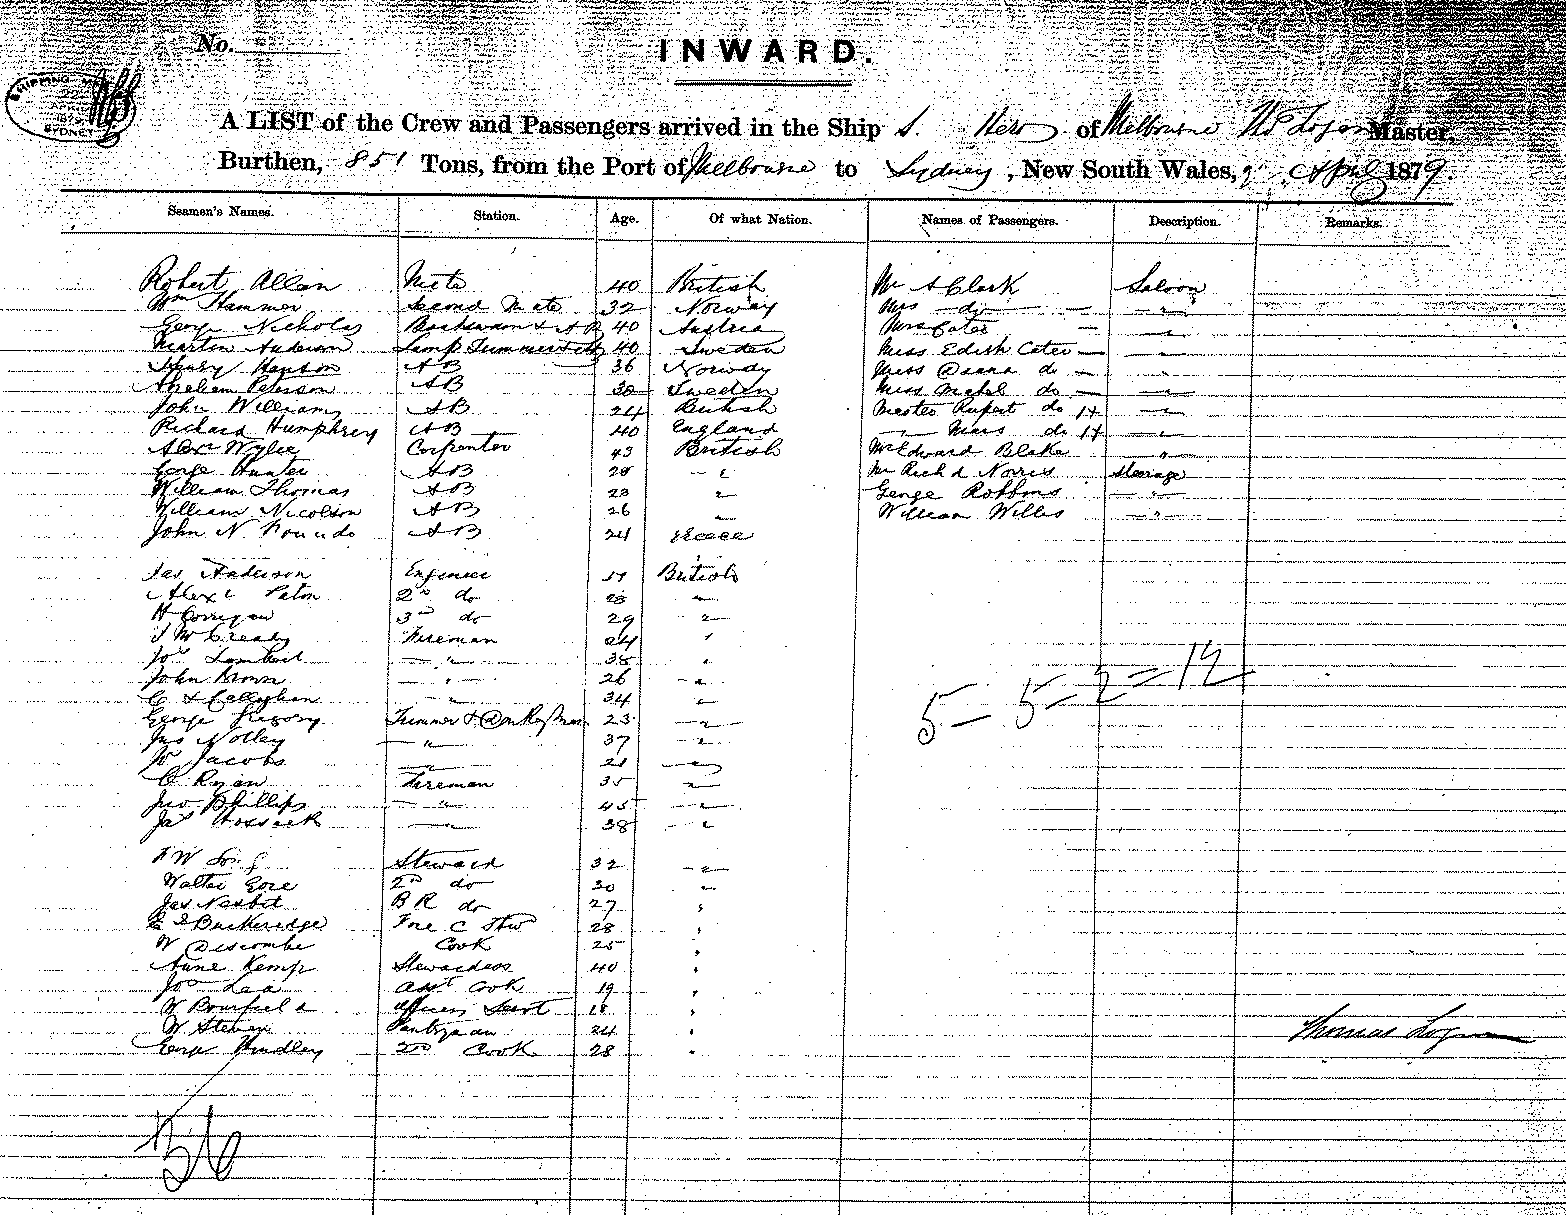 No.
INWARD.
SHIPPING
SYDNEY
A LIST of the Crew and Passengers arrived in the Ship S. Hero of Melbourne Ths Logan Master,
Burthen, 851 Tons, from the Port of Melbourne to Sydney, New South Wales, April 1879.
Seamen's Names. Station. Age. Of what Nation. Names of Passengers. Description. Remarks.
Robert Allan Mate 40 British Mr A Clark Saloon
Wm Hammer Second Mate 32 Norway Mrs do — "
George Nicholas Boatswain & AB 40 Austria Mrs Cater — "
Martin Anderson Lamp Trimmer & AB 40 Sweden Miss Edith Cater — "
Henry Hanson AB 36 Norway Miss do — "
Abraham Peterson AB 30 Sweden Miss do — "
John Williams AB 24 British Master Rupert do 1+ "
Richard Humphrey AB 40 England do 1+ "
Alexr Wylie Carpenter 43 British Mr Edward Blake "
George Hunter AB 28 " Mr Richd Norris Steerage
William Thomas AB 23 " George Robbins "
William Nicolson AB 26 " William Willis "
John N AB 24 Greece
Jas Anderson Engineer British
Alexr Paton 2nd do 23 "
H Corrigan 3rd do 29 "
J McCready Fireman 24 "
Jos Lambert " 38 "
John Brown " 26 "
C O'Callaghan " 34 "
George Gregory Trimmer & Donkeyman 23 "
Jas Notley " 37 "
W Jacobs " 21 "
C Ryan Fireman 35 "
Jno Phillips " 45 "
Jas Hossack " 38 "
5 — 5 = 2 = 12
Steward 32 "
Walter Gore 2nd do 30 "
Jas Nesbit B R do 27 "
Buckeridge Fore C Stw 28 "
W Discombe Cook 25 "
Anne Kemp Stewardess 40 "
Jos Lea Asst Cook 19 "
W Officers Servt 18 "
W Steven Pantryman 24 "
Hindley 2nd Cook 28 "
Thomas Logan
36